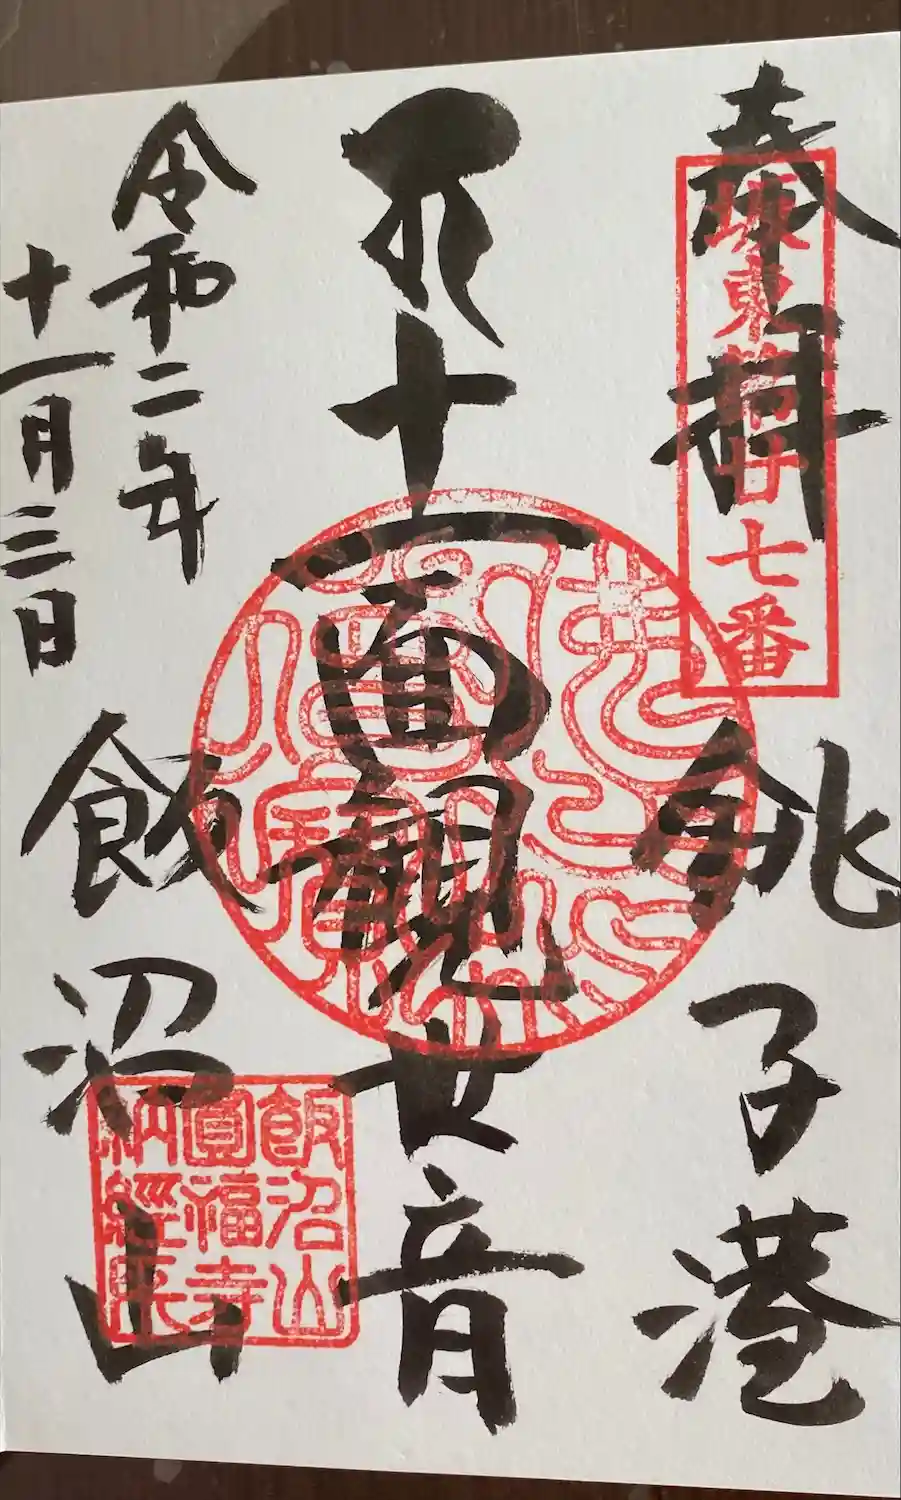 奉拝
坂東第廿七番
銚子港
十一面観世音
飯沼山
圓福寺
納経所
飯沼山
令和二年
十一月三日